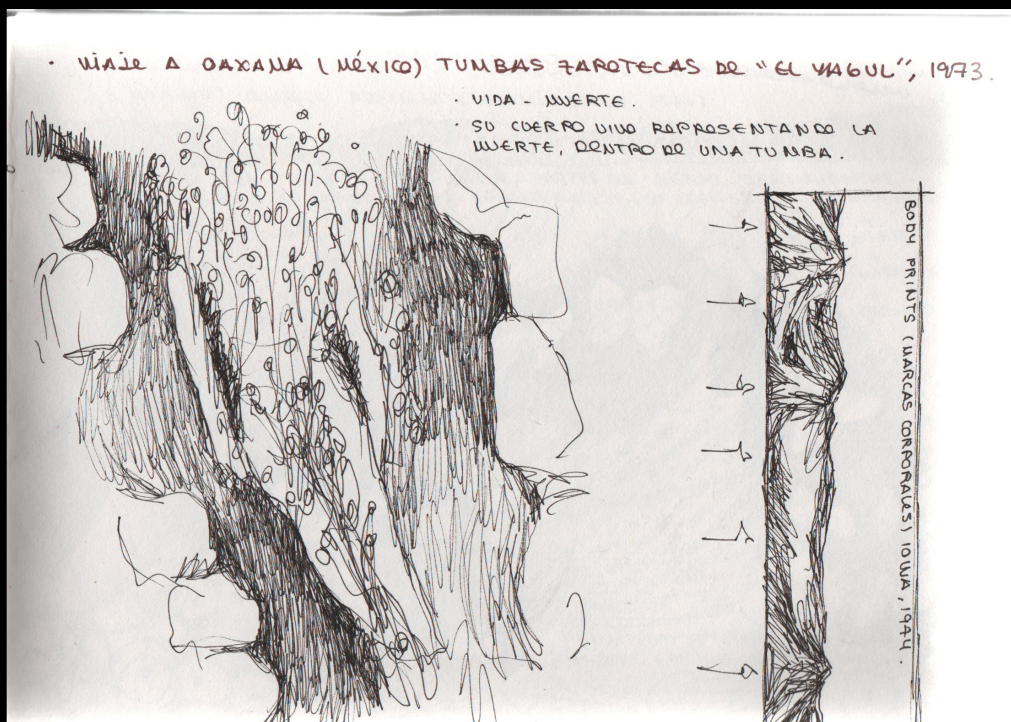 · VIAJE A OAXAMA (MÉXICO) TUMBAS ZAPOTECAS DE "EL YAGUL", 1973.
· VIDA - MUERTE.
· SU CUERPO VIVO REPRESENTANDO LA
MUERTE, DENTRO DE UNA TUMBA.
BODY PRINTS (MARCAS CORPORALES) IOWA, 1944.